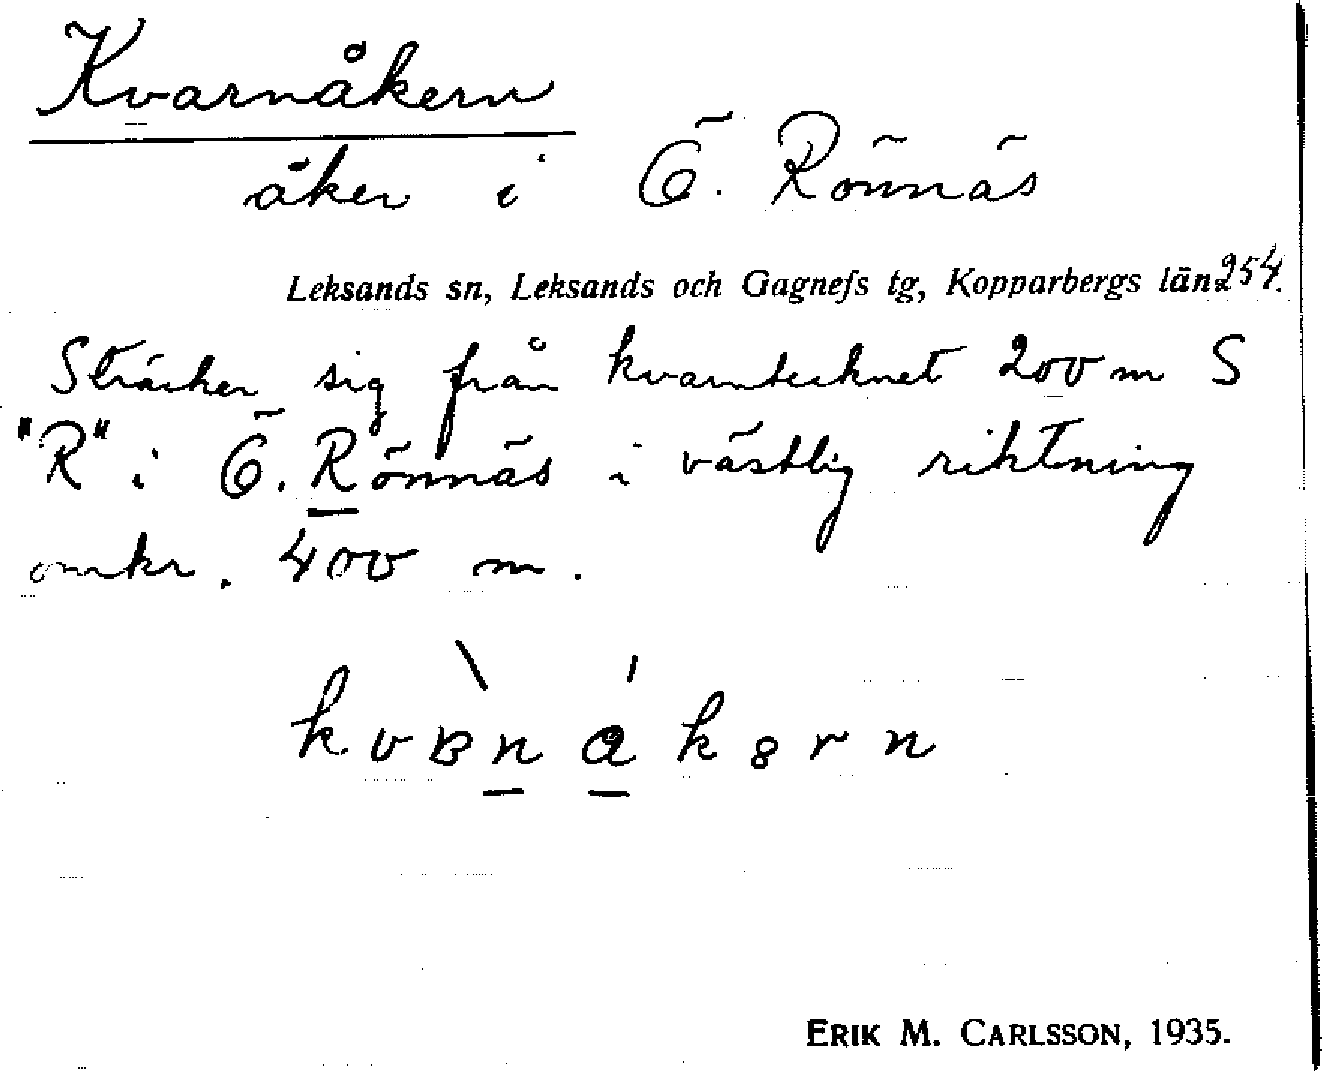 Kvarnåkern
åker i Ö. Rönnäs
Leksands sn, Leksands och Gagnefs tg, Kopparbergs län. 254.
Sträcker sig från kvarntecknet 200 m S
"R" i Ö. Rönnäs i västlig riktning
omkr. 400 m.
ERIK M. CARLSSON, 1935.